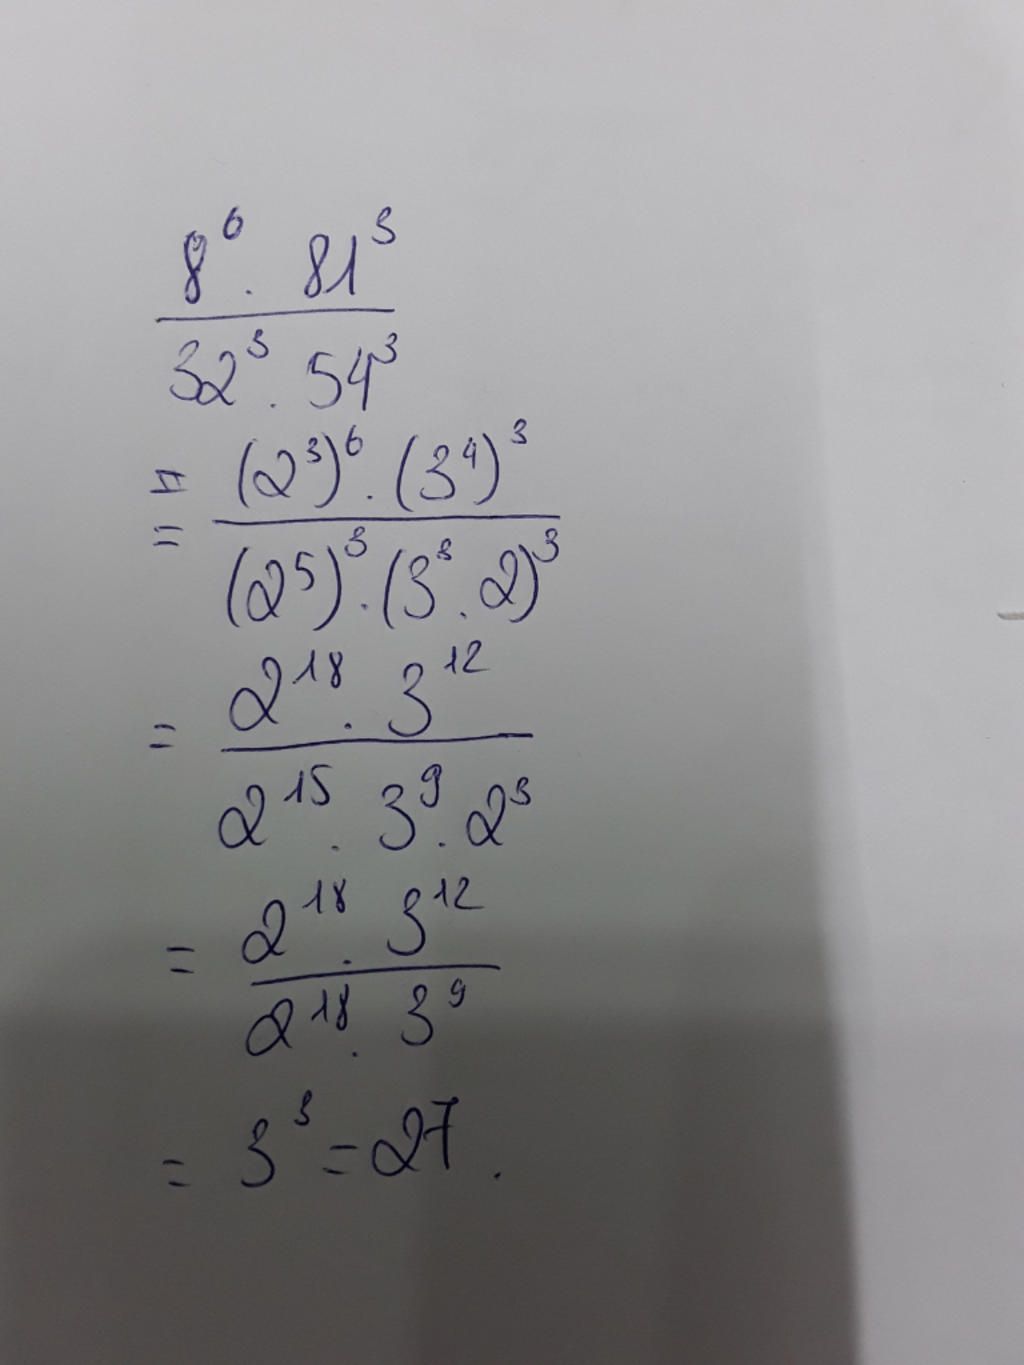 8⁶ . 81³
32³ . 54³
= (2³)⁶ . (3⁴)³
= (2⁵)³ . (3³ . 2)³
= 2¹⁸ . 3¹²
2¹⁵ . 3⁹ . 2³
= 2¹⁸ . 3¹²
2¹⁸ . 3⁹
= 3³ = 27 .